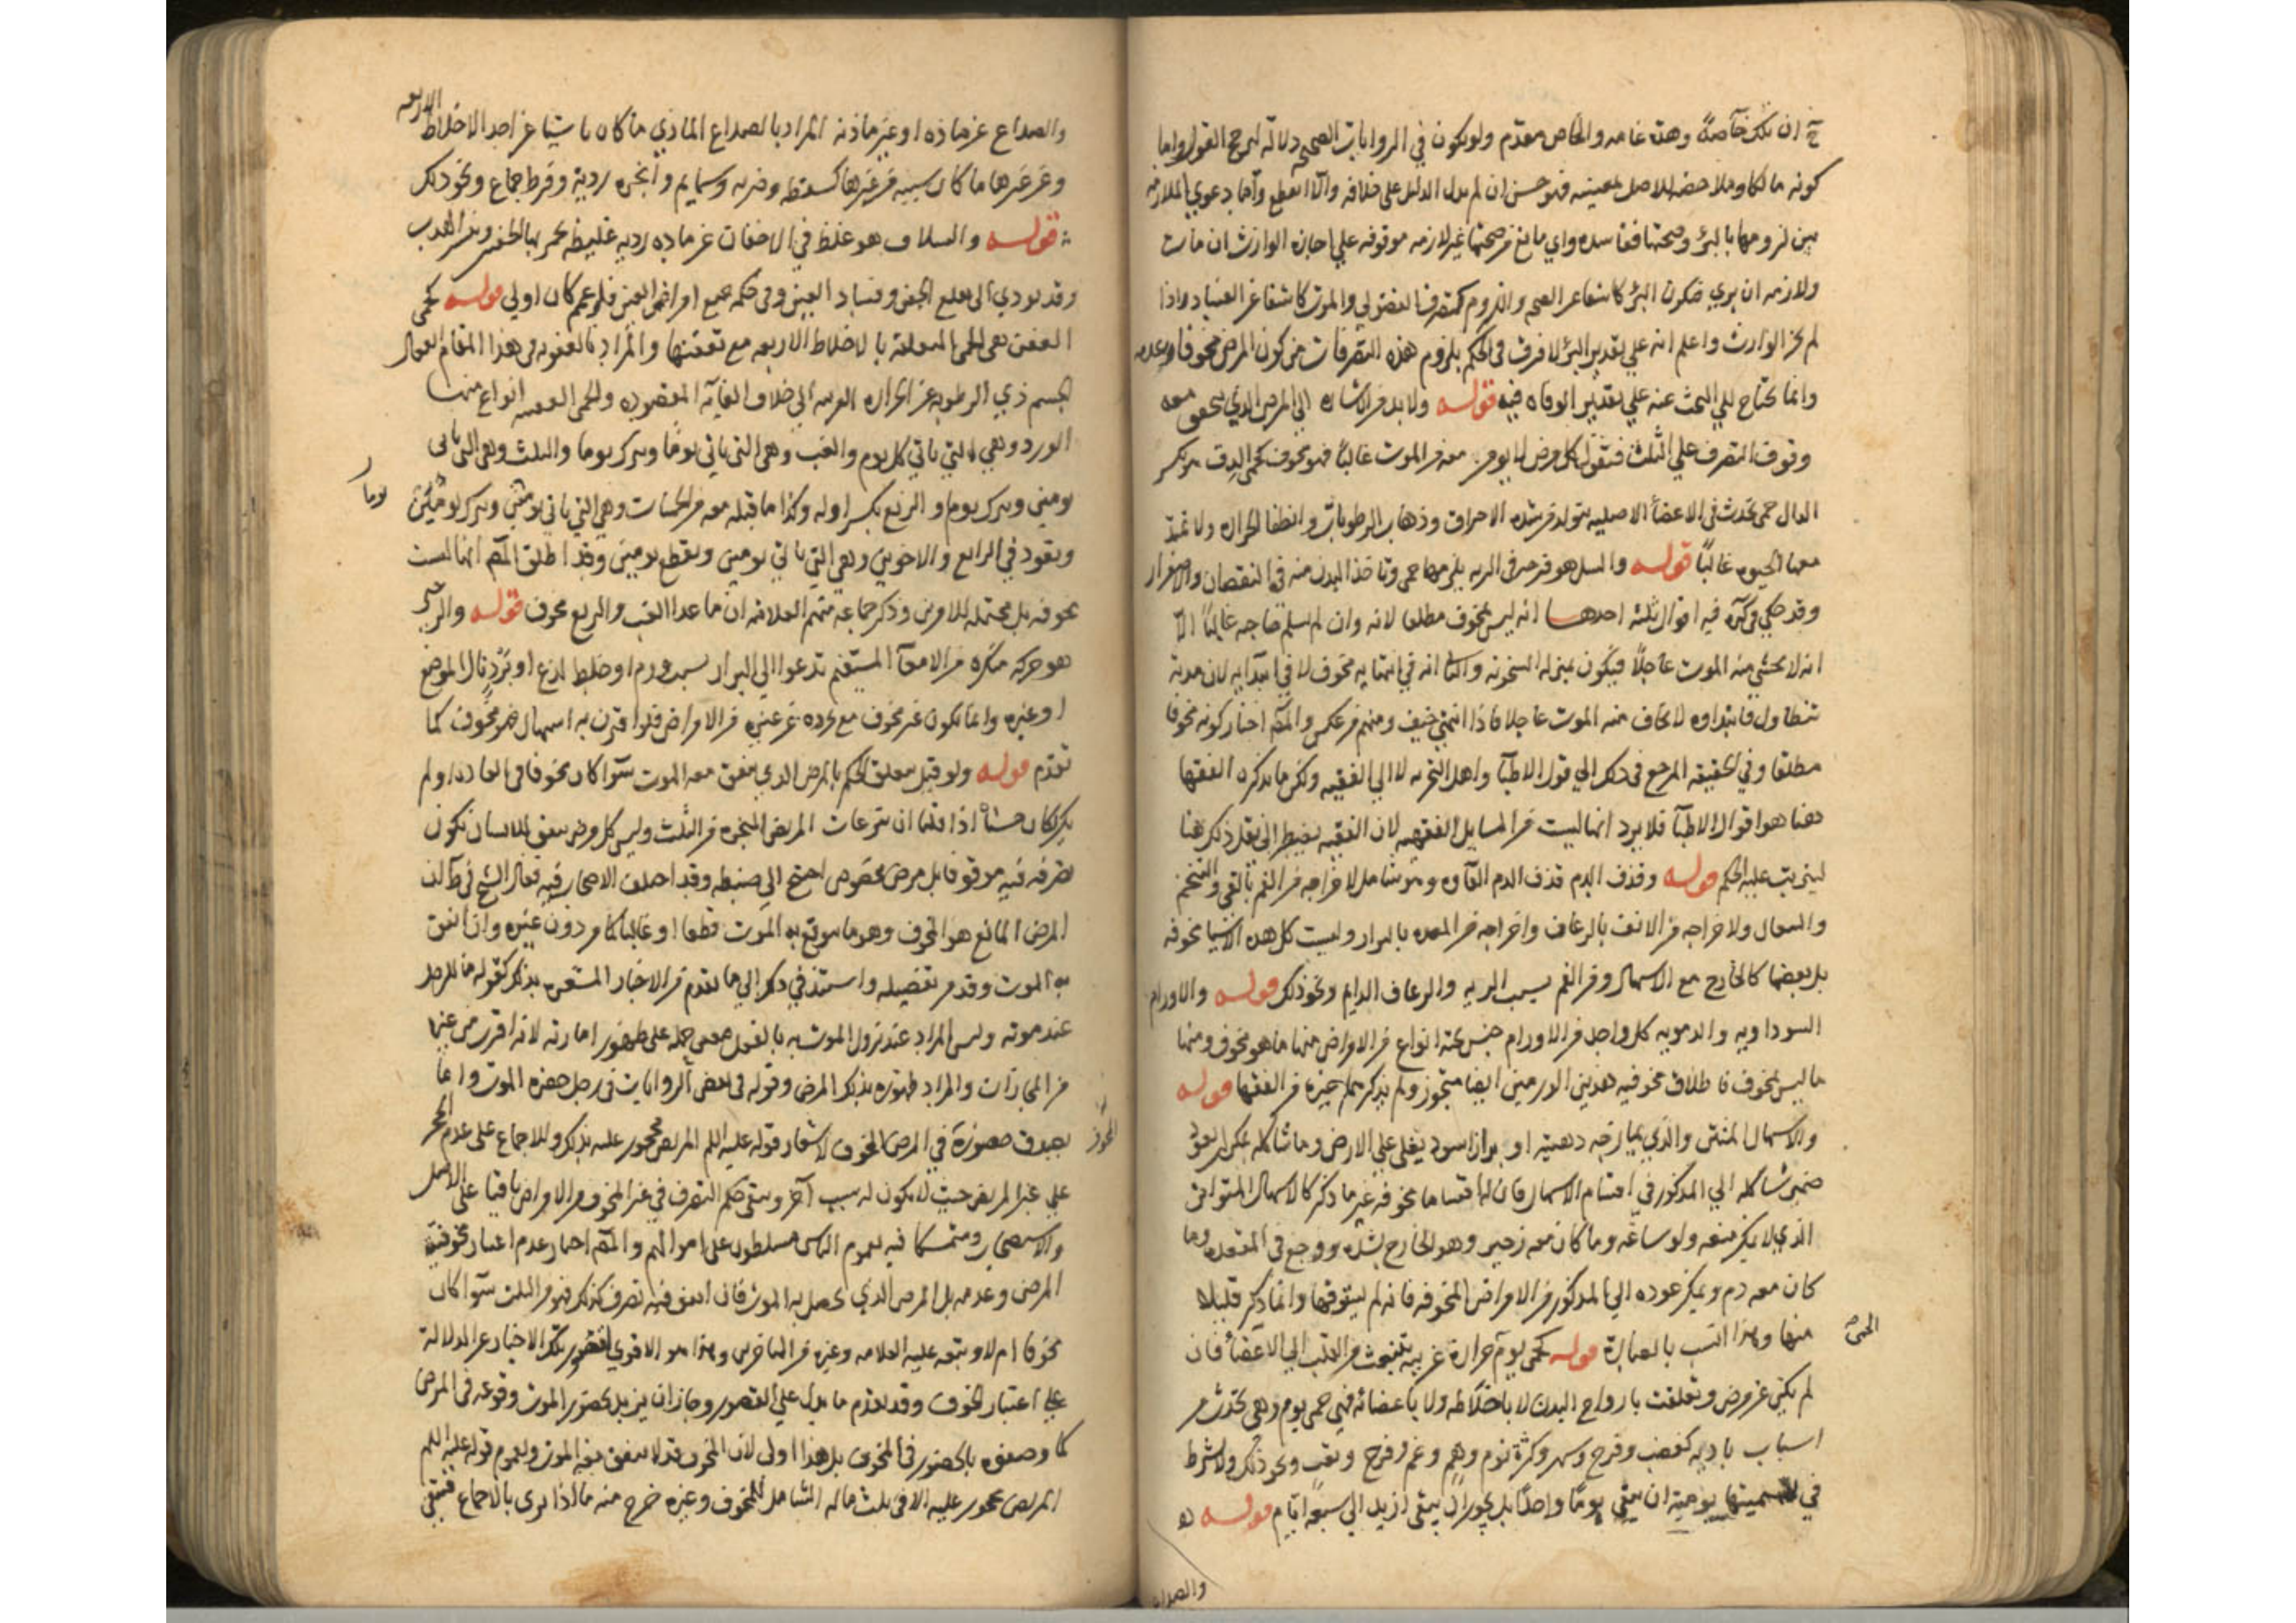 ان تلك خاصة وهذه عامه والخاص مقدم ولو يكون في الروايات الصحيحه دلالة لمرجح القول واما
كونه مالكا وملاحضه الاصل بعينه فهو حسن ان لم يدل الدليل على خلافه والا انقطع واما دعوي الملازمه
بين لزومها بالبرؤ وصحتها ففاسده واي مانع من صحتها غير لازمه موقوفه علي اجازه الوارث ان مات
ولازمه ان بري فيكون البرؤ كاشفا عن الصحه واللزوم كتصرف الفضولي والموت كاشفا عن الفساد اذا
لم يجز الوارث واعلم انه علي تقدير البرؤ لا فرق في الحكم بلزوم هذه التصرفات بين كون المرض مخوفا وعدمه
وانما يحتاج الي البحث عنه علي تقدير الوفاه فيه قوله ولا بد من الاشاره الي المرض الذي يتحقق معه
وقوف التصرف علي الثلث فنقول كل مرض لا يومن معه من الموت غالبا فهو مخوف كحمي الدق هو بكسر
الدال حمي تحدث في الاعضأ الاصليه يتولد من شده الاحراق وذهاب الرطوبات وانطفا الحراره ولا تمتد
معها الحيوه غالبًا قوله والسل هو قرحه في الريه يلزمها حمي وياخذ البدن منه في النقصان والاصفرار
وقد حكي في كره فيه اقوال ثلثه احدها انه ليس بمخوف مطلقا لانه وان لم يسلم صاحبه غالبا الا
انه لا يخشي منه الموت عاجلًا فيكون بمنزله الشيخوخه والثا انه في انتهايه مخوف لا في ابتدايه لان مدته
تتطاول فابتداوه لا يخاف منه الموت عاجلا فاذا انتهي خيف ومنهم من عكس والمص اختار كونه مخوفا
مطلقا وفي الحقيقه المرجع في ذلك الي قول الاطبآ واهل التجربه لا الي الفقيه ولكن ما يذكره الفقها
هنا هو اقوال الاطبآ فلا يرد انها ليست من المسايل الفقهيه لان الفقيه يضطر الي نقل ذلك هنا
ليترتب عليه الحكم قوله وقذف الدم قذف الدم القاوه وهو شامل لاخراجه من الفم بالقي والتنخم
والسعال ولاخراجه من الانف بالرعاف واخراجه من المعده بالبراز وليست كل هذه الاشيا مخوفه
بل بعضها كالخارج مع الاسهال ومن الفم بسبب الريه والرعاف الدايم ونحو ذلك قوله والاورام
السوداويه والدمويه كل واحد من الاورام جنس تحته انواع من الامراض منها ما هو مخوف ومنها
ما ليس بمخوف فاطلاق مخوفيه هذين الورمين ايضا متجوز ولم يذكرهما غيره من الفقها قوله
والاسهال المنتن والذي يمازجه دهنيه او براز اسود يغلي علي الارض وما شاكله يمكن ان يعود
ضمير شاكله الي المذكور في اقسام الاسهال فان لها اقساما مخوفه غير ما ذكر كالاسهال المتواتر
الذي لا يمكن منعه ولو ساعه وما كان معه زحير وهو الخارج بشده ووجع في المقعده وما
كان معه دم ويمكن عوده الي المذكور من الامراض المخوفه فانه لم يستوفها وانما ذكر قليلا
منها وهذا انسب بالعبارة قوله كحمي يوم حرارة غريبه تنبعث من القلب الي الاعضأ فان
لم يكن عن مرض وتعلقت بارواح البدن لا باخلاطه ولا باعضائه فهي حمي يوم وهي تحدث من
اسباب باديه كغضب وفرح وسهر وكثرة نوم وهم وغم وفزع وتعب ونحو ذلك ولا يشترط
في تسميتها يوميه ان يبقي يومًا واحدًا بل يجوز ان تبقي ازيد الي سبعة ايام قوله
والصداع
والصداع عن ماده او غير ماده المراد بالصداع المادي ما كان ناشيا عن احد الاخلاط الاربعه
وعن غيرها ما كان سببه من غيرها كسقطه وضربه وسمايم وابخره رديه وفرط جماع ونحو ذلك
قوله والسلاق هو غلظ في الاجفان عن ماده رديه غليظه يحمر بها الجفن وينتثر الهدب
وقد يودي الي تقلع الجفن وفساد العين وفي حكمه جميع امراض العين فلو عمم كان اولي قوله كحمي
العفن هي الحمي المتعلقه بالاخلاط الاربعه مع تعفنها والمراد بالعفونه في هذا المقام انفعال
الجسم ذي الرطوبه عن الحراره الغريبه الي خلاف الغايه المقصوده والحمي العفنيه انواع منها
الورد وهي التي تاتي كل يوم والغب وهي التي تاتي يوما وتترك يوما والثلث وهي التي تاتي
يومين وتترك يوما والربع بكسر اوله وكذا ما قبله معه من الحميات وهي التي تاتي يوما وتترك يومين
يوما
وتعود في الرابع والاخوين وهي التي تاتي يومين وتقطع يومين وقد اطلق المص انها ليست
مخوفه بل محتمله للامرين وذكر جماعه منهم العلامه ان ما عدا الغب والربع مخوف قوله والزحير
هو حركه منكره من الامعآ المستقيم تدعوا الي البراز بسبب ورم او خلط لازع او برد نال الموضع
او غيره وانما يكون غير مخوف مع تجرده عن غيره من الامراض فلو اقترن به اسهال فهو مخوف كما
تقدم قوله ولو قيل يتعلق الحكم بالمرض الذي يتفق معه الموت سوآ كان مخوفا في العاده او لم
يكن لكان حسنا اذا قلنا ان تبرعات المريض المنجزه من الثلث وليس كل مرض يتفق للانسان يكون
تصرفه فيه موقوفا بل مرض مخصوص احتيج الي ضبطه وقد اختلف الاصحاب فيه فقال الشيخ في ط ان
المرض المانع هو المخوف وهو ما يتوقع به الموت قطعا او غالبا كما مر دون غيره وان اتفق
به الموت وقد مر تفصيله واستند في ذلك الي ما تقدم من الاخبار المشعره بذلك كقوله ما للرجل
عند موته وليس المراد عند نزول الموت به بالفعل فتعين حمله علي ظهور امارته لانه اقرب من غيرها
من المجازات والمراد ظهوره بذلك المرض وقوله في بعض الروايات في رجل حضره الموت وانما
يصدق حضوره في المرض المخوف ولاشعار قوله عليه السلم المريض محجور عليه بذلك وللاجماع علي عدم الحجر
علي غير المريض حيث لا يكون له سبب آخر ويبقي حكم التصرف في غير المخوف من الامراض باقيا علي الاصل
والاستصحاب ومتمسكا فيه بعموم الناس مسلطون علي اموالهم والمص اختار عدم اعتبار مخوفية
المرض وعدمه بل المرض الذي يحصل به الموت فان اتفق فيه تصرف كذلك فهو من الثلث سوآ كان
مخوفا ام لا وتبعه عليه العلامه وغيره من المتاخرين وهذا هو الاقوي لقصور تلك الاخبار عن الدلالة
علي اعتبار المخوف وقد تقدم ما يدل علي القصور وجاز ان يريد بحضور الموت وقوعه في المرض
كما وصفوه بالحضور في المخوف بل هذا اولي لان المخوف قد لا يتفق معه الموت ولعموم قوله عليه السلم
المريض محجور عليه الا في ثلث ماله الشامل للمخوف وغيره خرج منه ما اذا بري بالاجماع فيبقي